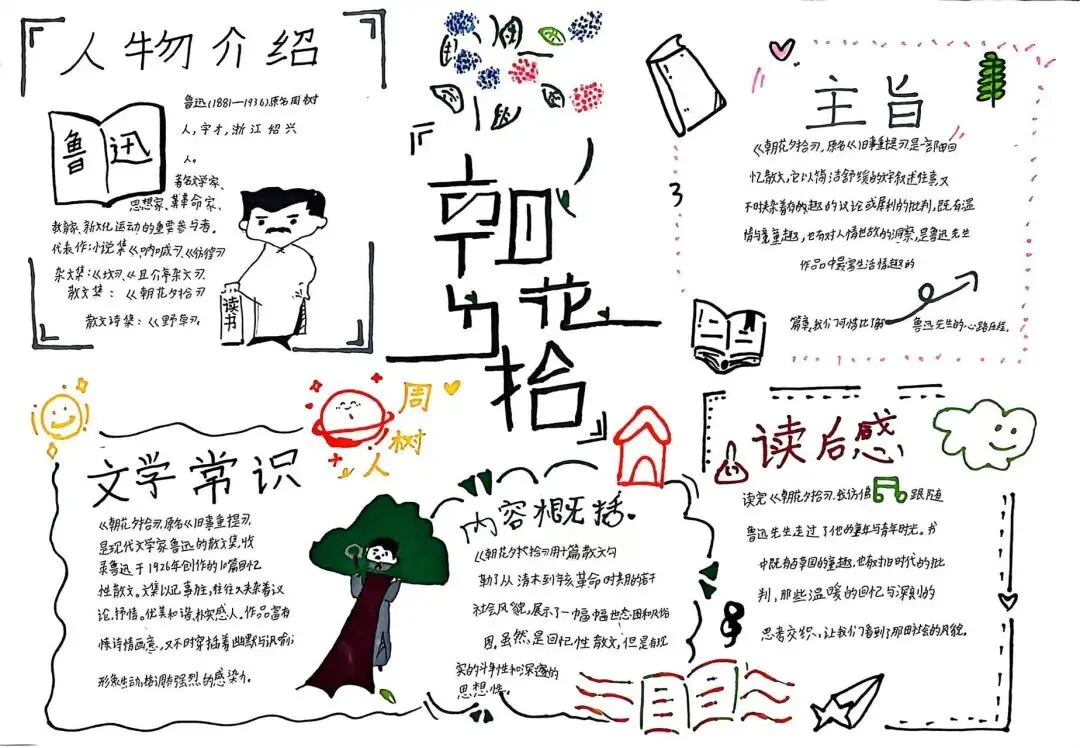 人物介绍
鲁迅(1881—1936),原名周树
人,字才,浙江绍兴
人。
鲁迅
著名文学家、
思想家、革命家、
教育家、新文化运动的重要参与者。
代表作:小说集《呐喊》、《彷徨》
杂文集:《坟》、《且介亭杂文》
散文集:《朝花夕拾》
散文诗集:《野草》
读书
朝花夕拾
主旨
《朝花夕拾》,原名《旧事重提》是一部回
忆散文,它以简洁舒缓的文字叙述往事,又
不时夹杂着有趣的议论或犀利的批判,既有温
情与童趣,也有对人情世故的洞察,是鲁迅先生
作品中最富生活情趣的
篇章,我们可借此了解 鲁迅先生的心路历程。
周树人
文学常识
《朝花夕拾》,原名《旧事重提》,
是现代文学家鲁迅的散文集,收
录鲁迅于1926年创作的10篇回忆
性散文。文集以记事为主,往往夹杂着议
论、抒情。优美和谐,朴实感人。作品富有
诗情画意,又不时穿插着幽默与讽喻;
形象生动,格调有强烈的感染力。
内容概括。
《朝花夕拾》用十篇散文勾
勒了从清末到辛亥革命时期的若干
社会风貌,展示了一幅幅世态图和风俗
图。虽然,是回忆性散文,但是有现
实的斗争性和深邃的
思想性。
读后感
读完《朝花夕拾》,我仿佛 跟随
鲁迅先生走过了他的童年与青年时光。书
中既有田园的童趣,也有对旧时代的批
判,那些温暖的回忆与深刻的
思考交织,让我们看到了那旧社会的风貌。